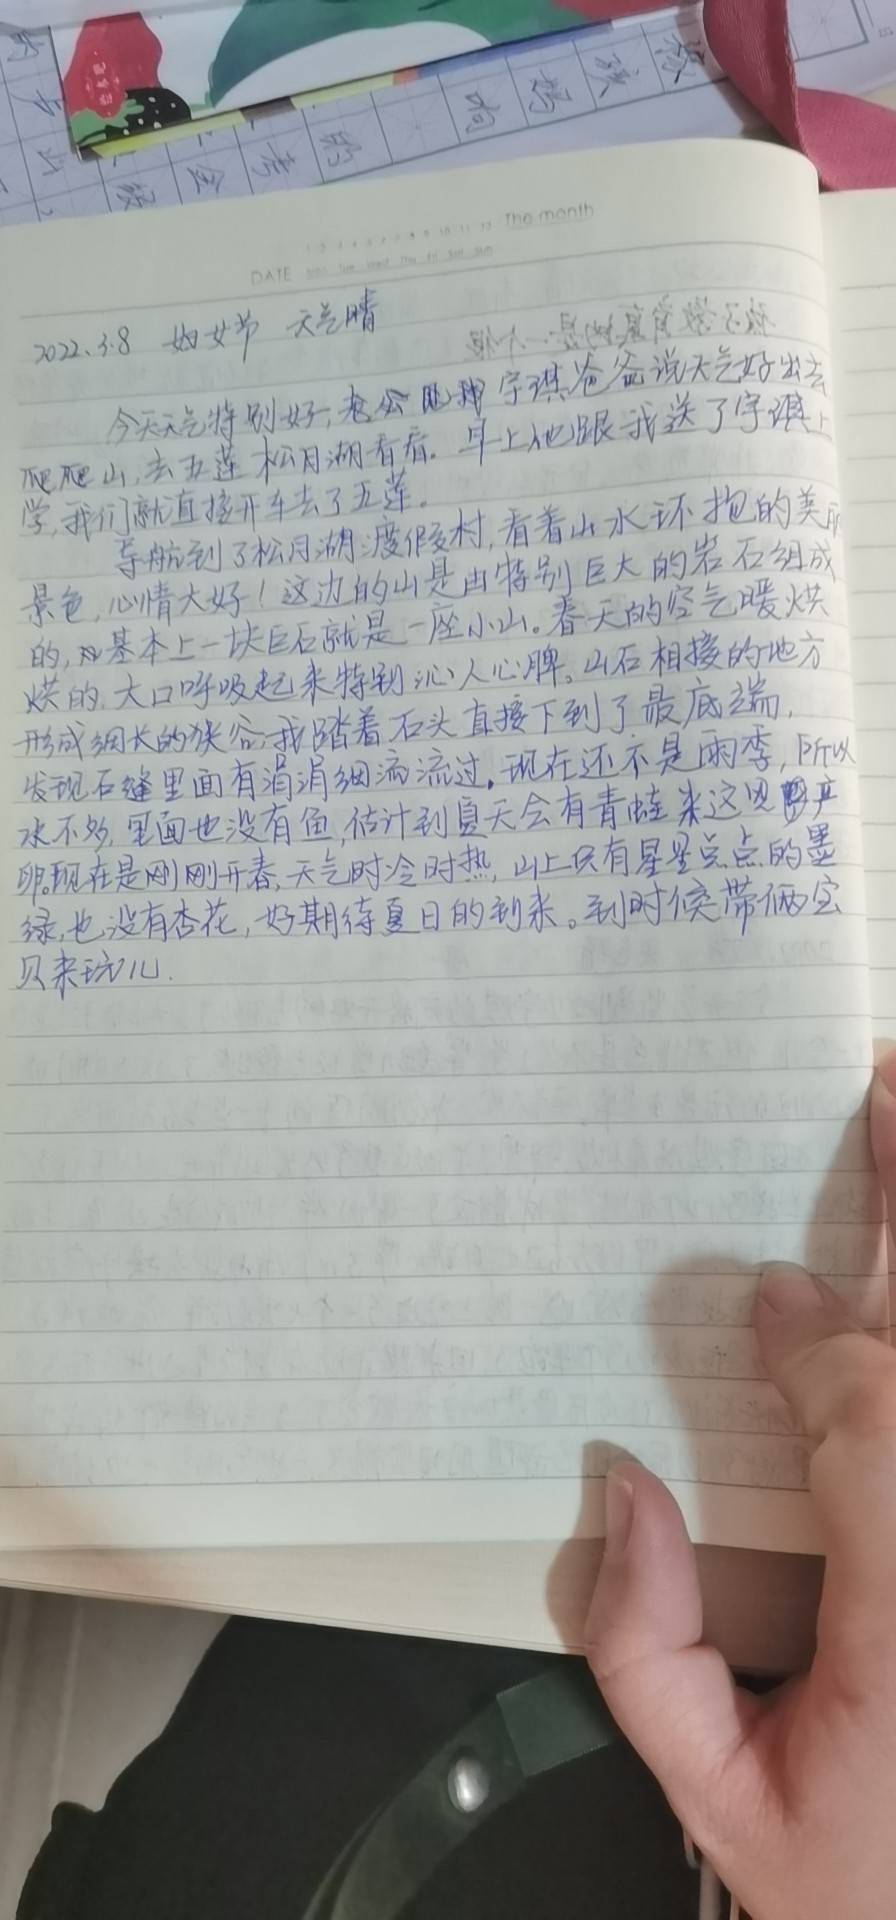 The month
DATE
2022.3.8 妇女节 天气晴
今天天气特别好,老公 宇琪爸爸说天气好出去
爬爬山,去五莲松月湖看看。早上他跟我送了宇琪上
学,我们就直接开车去了五莲。
导航到了松月湖度假村,看着山水环抱的美丽
景色,心情大好!这边的山是由特别巨大的岩石组成
的,基本上一块巨石就是一座小山。春天的空气暖烘
烘的,大口呼吸起来特别沁人心脾。山石相接的地方
形成细长的狭谷,我踏着石头直接下到了最底端,
发现石缝里面有涓涓细流流过。现在还不是雨季,所以
水不多,里面也没有鱼,估计到夏天会有青蛙来这里产
卵。现在是刚刚开春,天气时冷时热,山上只有星星点点的墨
绿,也没有杏花,好期待夏日的到来。到时候带俩宝
贝来玩儿.